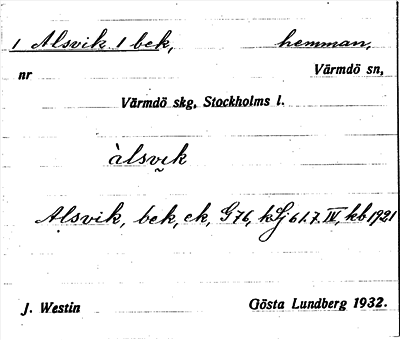 1 Alsvik 1 bek, hemman,
nr Värmdö sn,
Värmdö skg, Stockholms l.
àlsvik
Alsvik, bek, ek, G 76, kSj 61.7.IV, kb 1921
J. Westin Gösta Lundberg 1932.